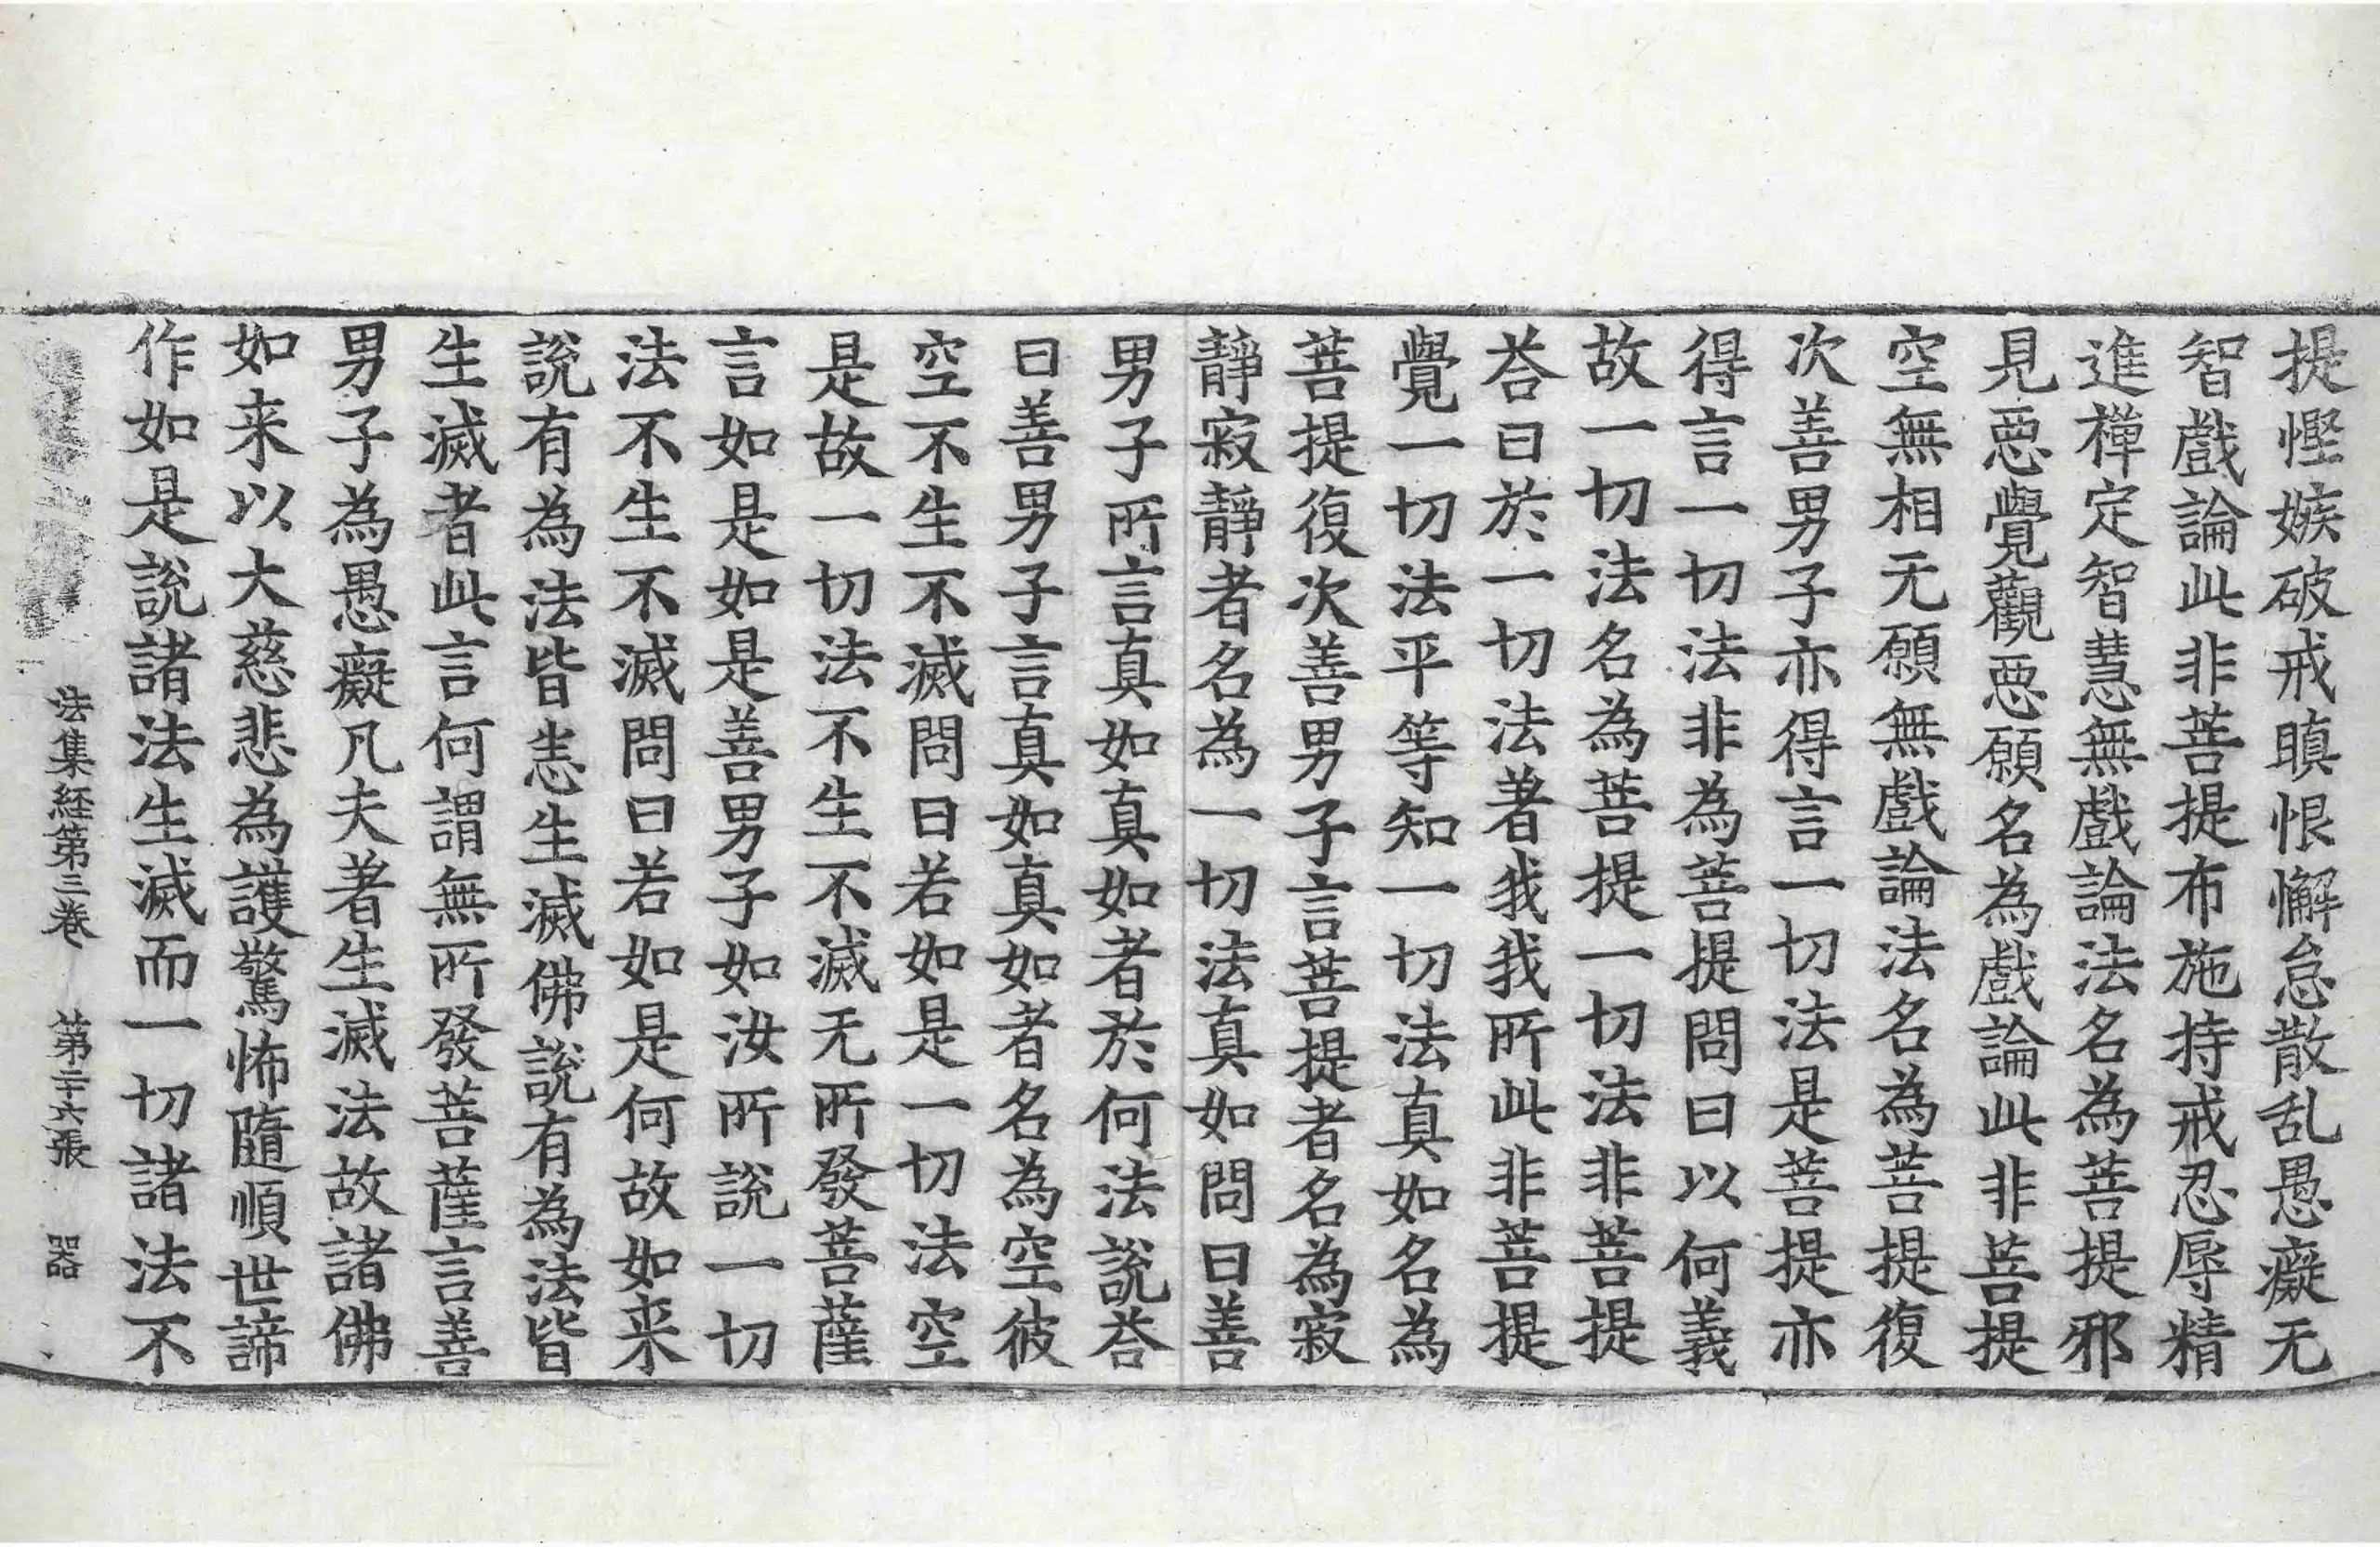 提慳嫉破戒瞋恨懈怠散乱愚癡无
智戲論此非菩提布施持戒忍辱精
進禪定智慧無戲論法名為菩提邪
見惡覺觀惡願名為戲論此非菩提
空無相无願無戲論法名為菩提復
次善男子亦得言一切法是菩提亦
得言一切法非為菩提問曰以何義
故一切法名為菩提一切法非菩提
荅曰於一切法著我我所此非菩提
覺一切法平等知一切法真如名為
菩提復次善男子言菩提者名為寂
靜寂靜者名為一切法真如問曰善
男子所言真如真如者於何法說荅
曰善男子言真如真如者名為空彼
空不生不滅問曰若如是一切法空
是故一切法不生不滅无所發菩薩
言如是如是善男子如汝所說一切
法不生不滅問曰若如是何故如来
說有為法皆恙生滅佛說有為法皆
生滅者此言何謂無所發菩薩言善
男子為愚癡凡夫著生滅法故諸佛
如来以大慈悲為護驚怖隨順世諦
作如是說諸法生滅而一切諸法不
法集経第三卷 第二十六張 器